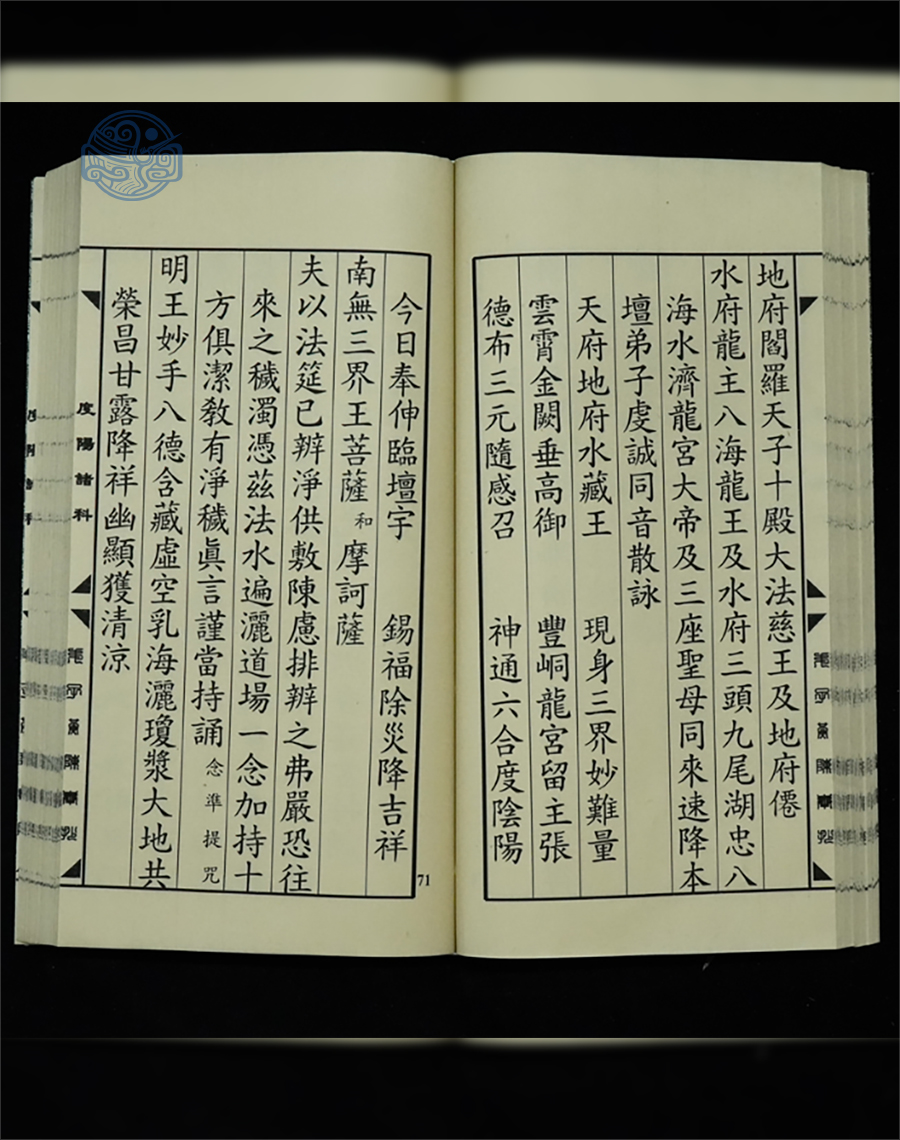 地府閻羅天子十殿大法慈王及地府僊
水府龍主八海龍王及水府三頭九尾湖忠八
海水濟龍宮大帝及三座聖母同來速降本
壇弟子虔誠同音散詠
天府地府水藏王　現身三界妙難量
雲霄金闕垂高御　豐峒龍宮留主張
德布三元隨感召　神通六合度陰陽
今日奉伸臨壇宇　錫福除災降吉祥
南無三界王菩薩和摩訶薩
夫以法筵已辦淨供敷陳慮排辦之弗嚴恐往
來之穢濁憑茲法水遍灑道場一念加持十
方俱潔教有淨穢眞言謹當持誦念準提咒
明王妙手八德含藏虛空乳海灑瓊漿大地共
榮昌甘露降祥幽顯獲清涼
度陽諸科
71